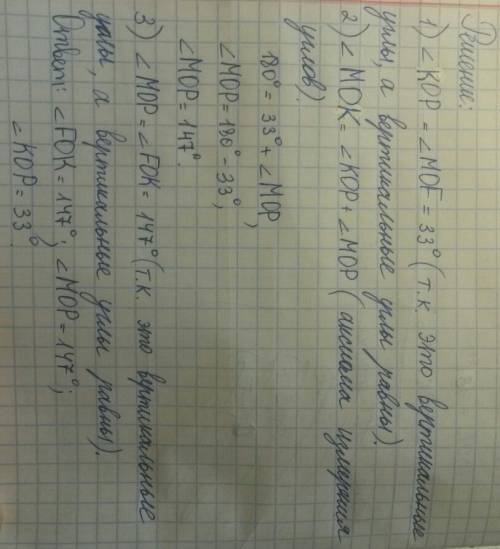 Решение:
1) ∠KOP = ∠MOF = 33° (т.к. это вертикальные
углы, а вертикальные углы равны).
2) ∠MOK = ∠KOP + ∠MOP (аксиома измерения
углов).
180° = 33° + ∠MOP,
∠MOP = 180° - 33°,
∠MOP = 147°.
3) ∠MOP = ∠FOK = 147° (т.к. это вертикальные
углы, а вертикальные углы равны).
Ответ: ∠FOK = 147°; ∠MOP = 147°;
∠KOP = 33°.